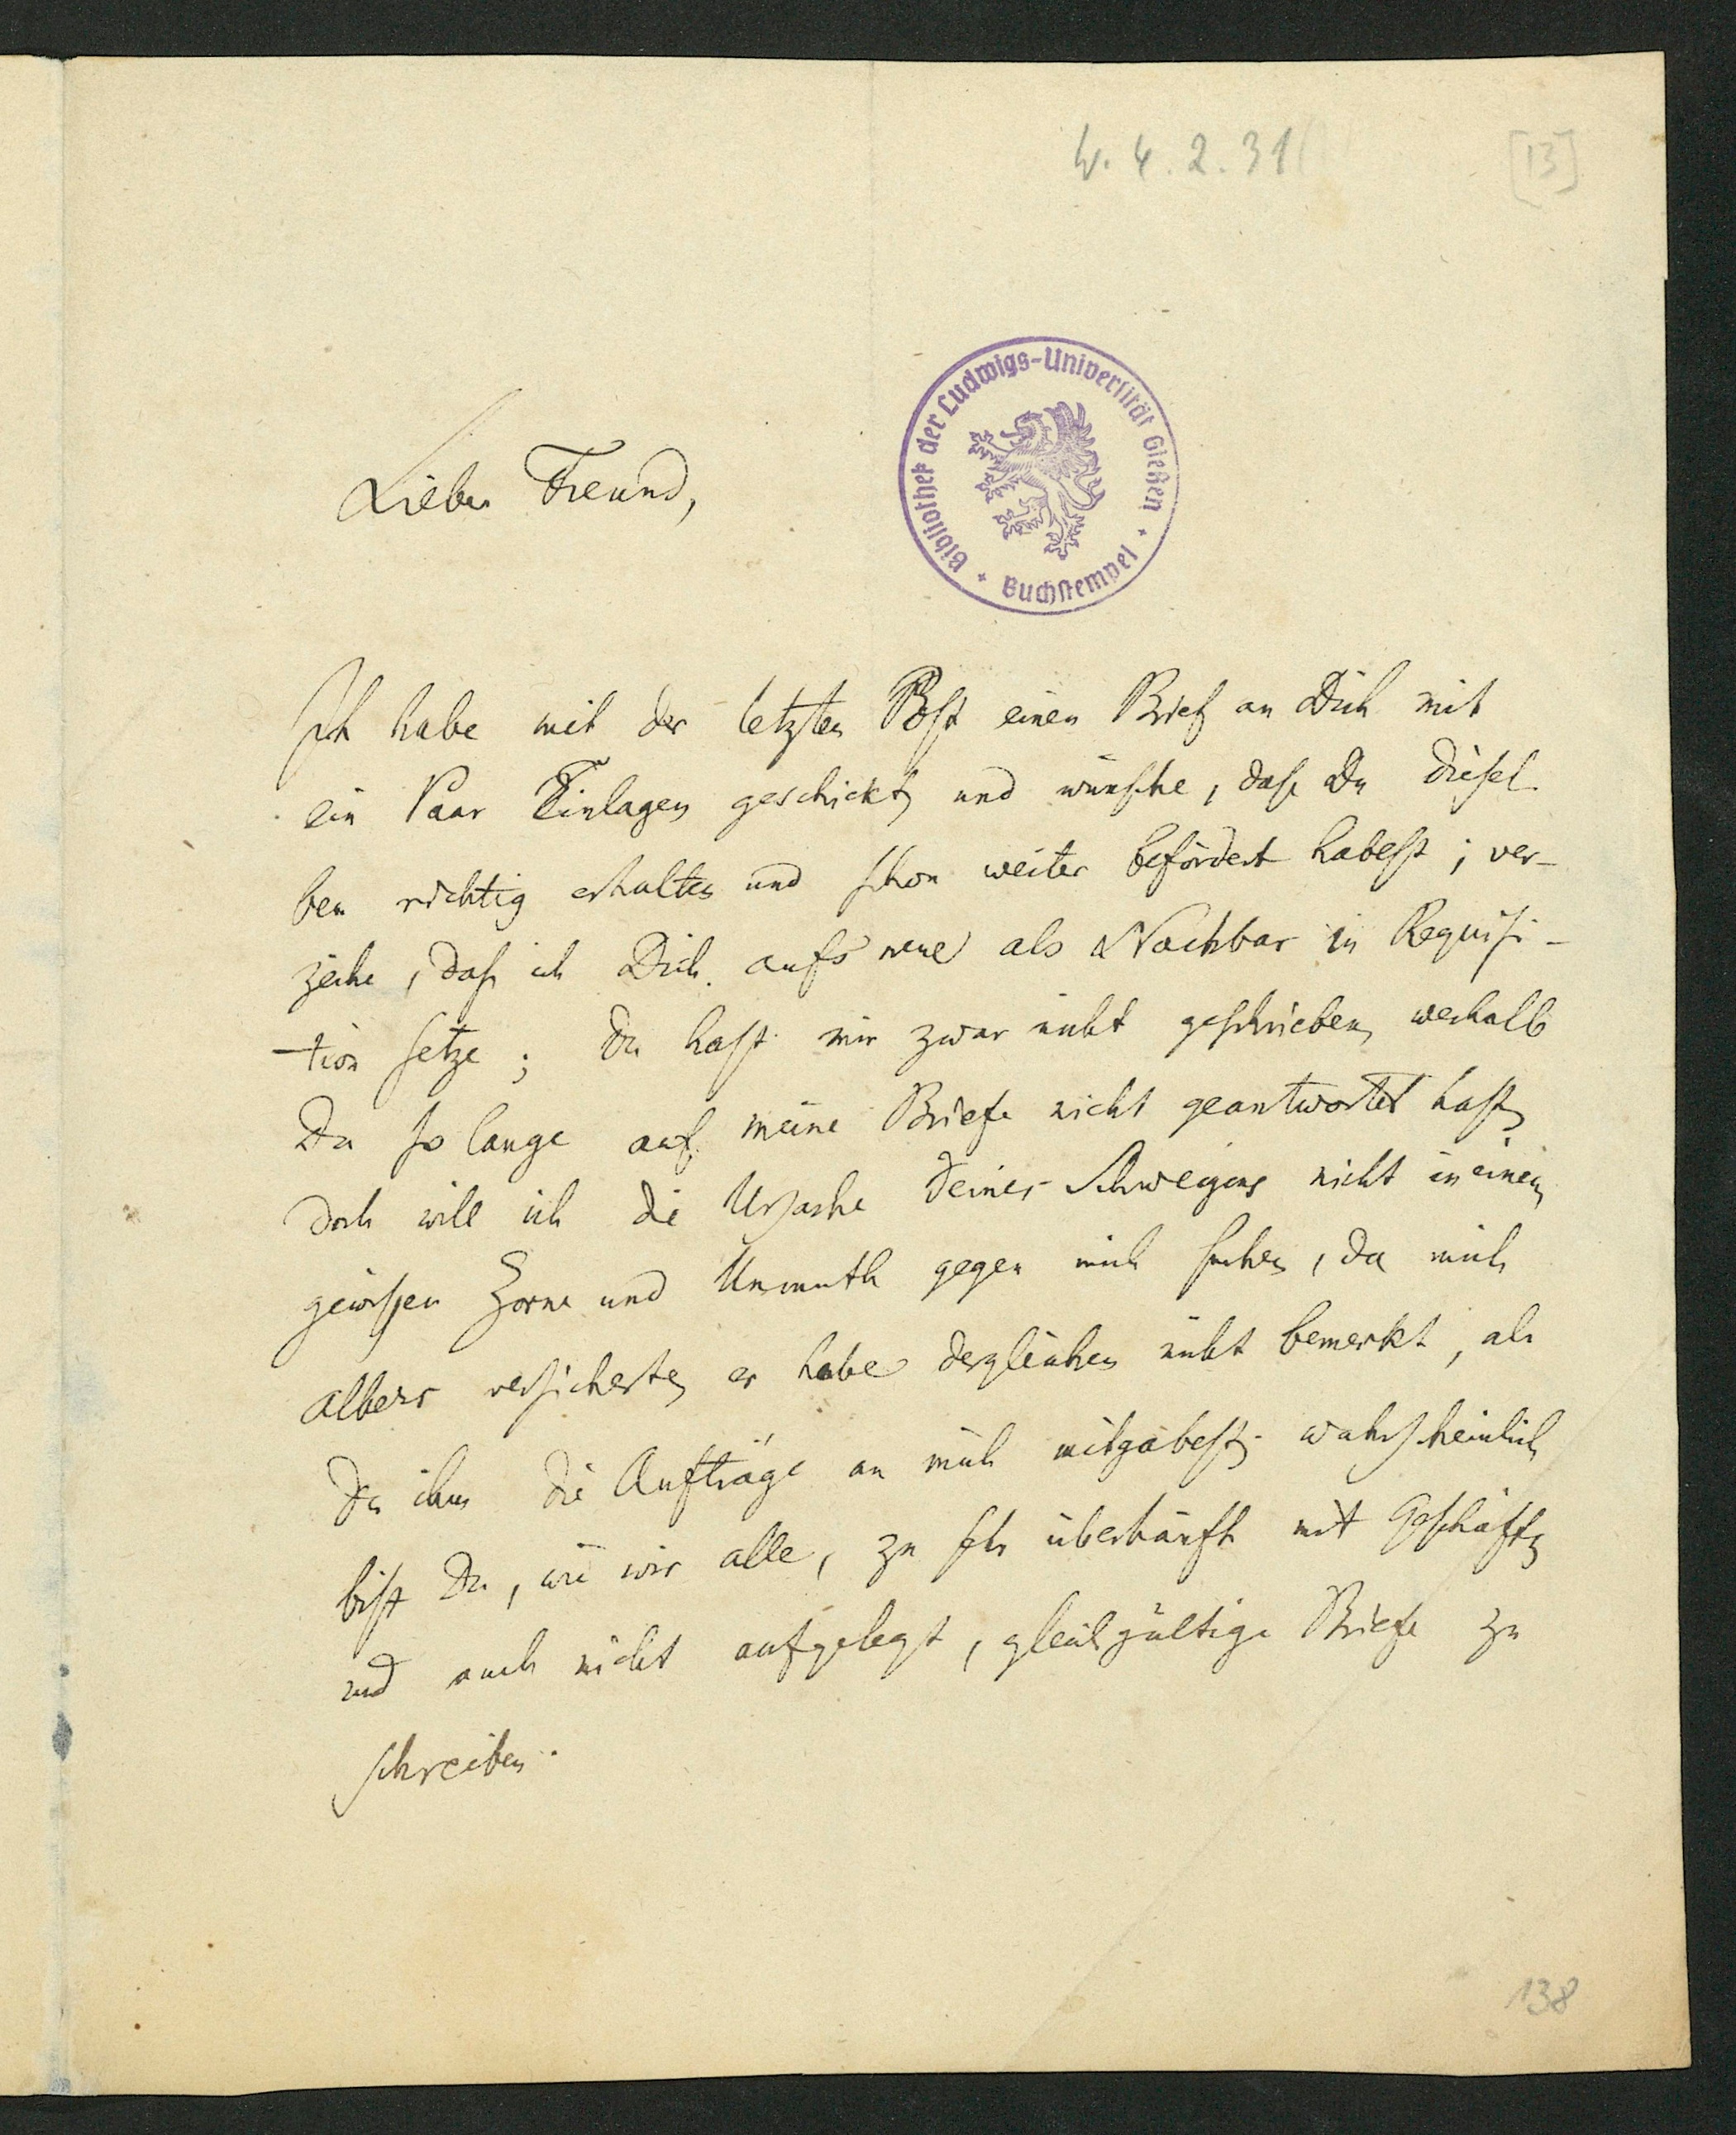 4. 4. 2. 31
[13]
Bibliothek der Ludwigs-Universität Gießen
Buchstempel
Lieber Freund,
Ich habe mit der letzten Post einen Brief an Dich mit
ein Paar Einlagen geschickt, und wünsche, daß Du diesel-
ben richtig erhalten und schon weiter befördert habest; ver-
zeihe, daß ich Dich aufs neue als Nachbar in Requisi-
tion setze; Du hast mir zwar nicht geschrieben, weshalb
Du so lange auf meine Briefe nicht geantwortet hast,
doch will ich die Ursache Deines Schweigens nicht in einem
gewissen Zorne und Unmuth gegen mich suchen, da mich
Albers versicherte, er habe dergleichen nicht bemerkt, als
Du ihm die Aufträge an mich mitgabest; wahrscheinlich
bist Du, wie wir alle, zu sehr überhäuft mit Geschäften
und auch nicht aufgelegt, gleichgültige Briefe zu
schreiben.
138